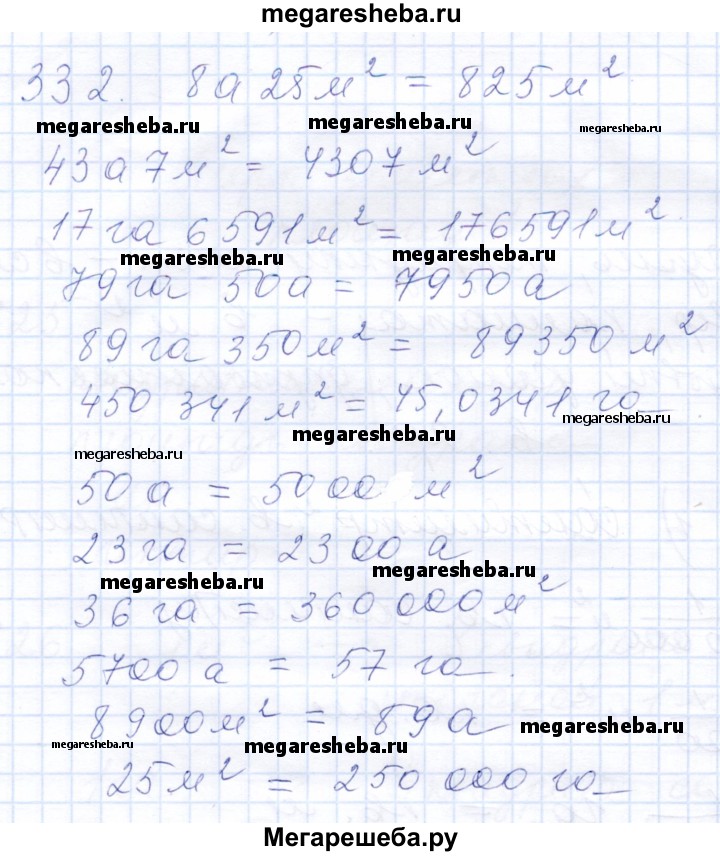 megaresheba.ru
332. 8а 25м² = 825м²
megaresheba.ru megaresheba.ru megaresheba.ru
43а 7м² = 4307м²
17га 6591м² = 176591м²
megaresheba.ru megaresheba.ru
79га 50а = 7950а
89га 350м² = 89350м²
450 341м² = 45,0341га
megaresheba.ru
megaresheba.ru
megaresheba.ru
50а = 5000м²
23га = 2300а
megaresheba.ru megaresheba.ru
36га = 360 000м²
5700а = 57га
8900м² = 89а
megaresheba.ru
megaresheba.ru megaresheba.ru
25м² = 250 000га
Мегарешеба.ру